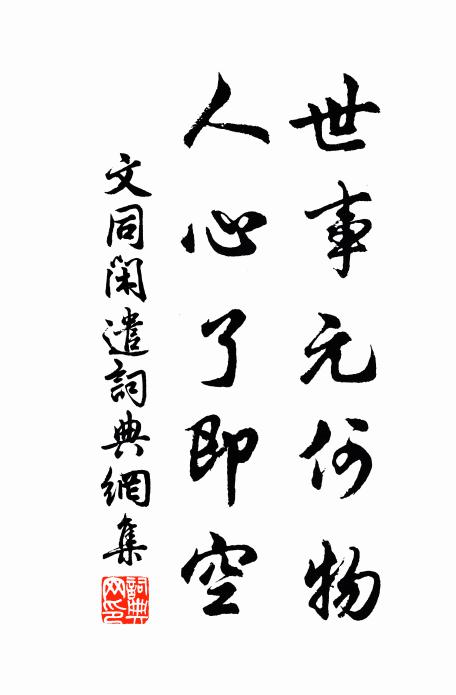 世事元何物
人心了即空
文同閑遣詞典網集
詞典網印